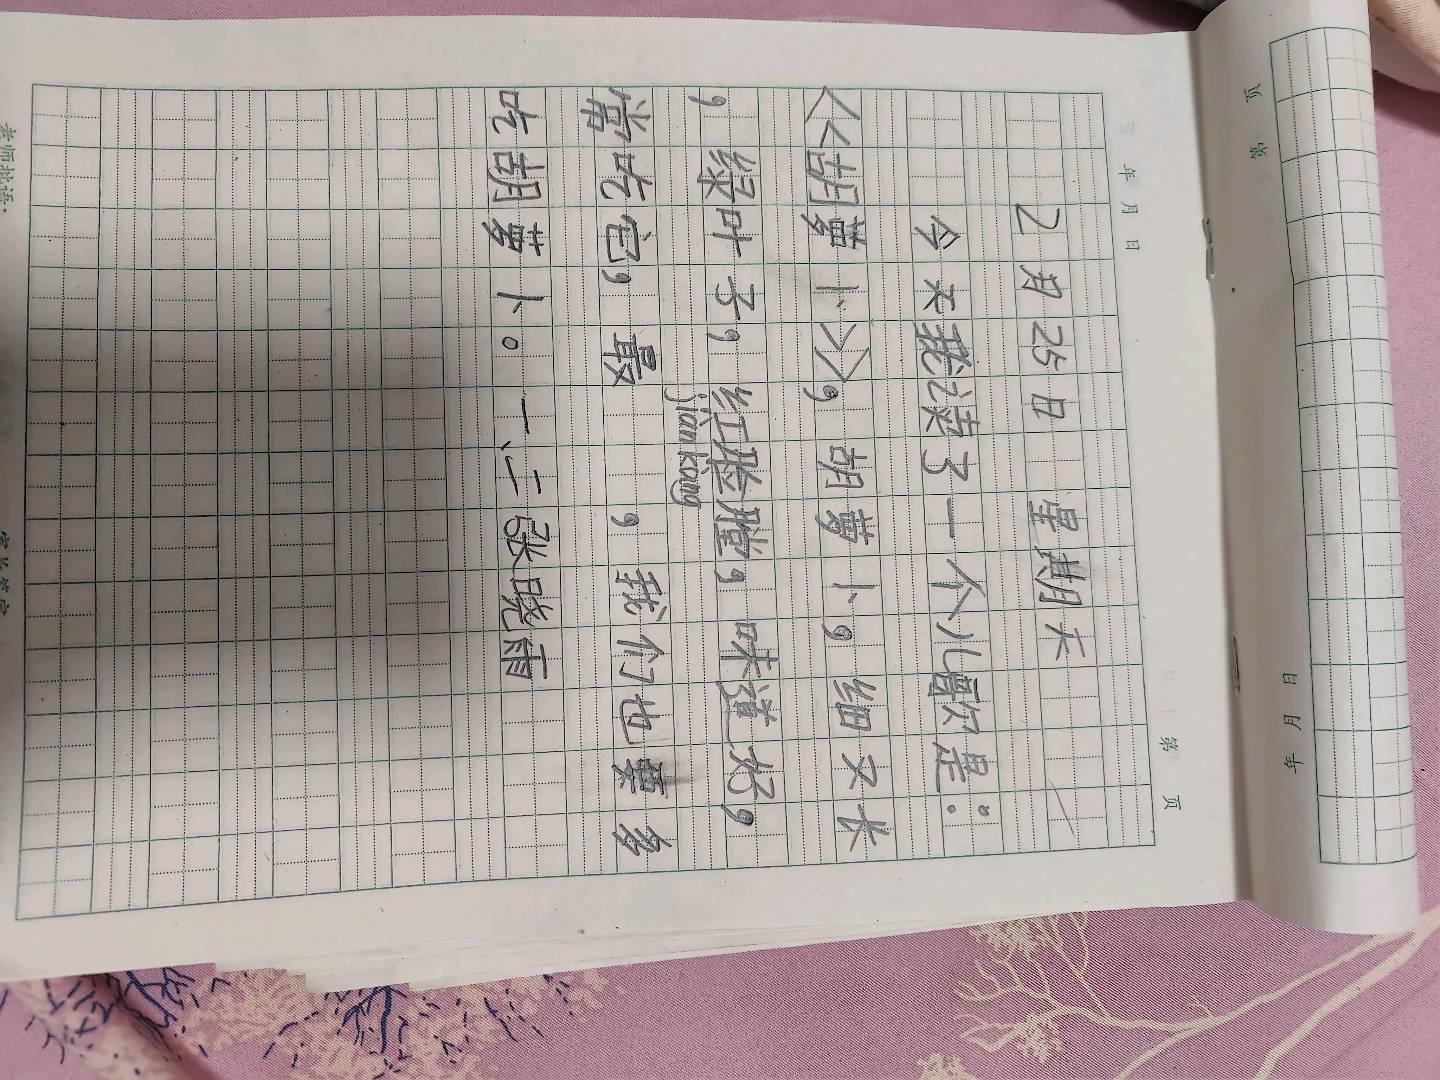 第 页
年 月 日
年 月 日
第 页
2月25日 星期天
今天我读了一个儿歌是:
《胡萝卜》,胡萝卜,细又长
,绿叶子,红脸膛,味道好,
jiankang
常吃它,最 ,我们也要多
吃胡萝卜。一、二张晓雨
老师批语: